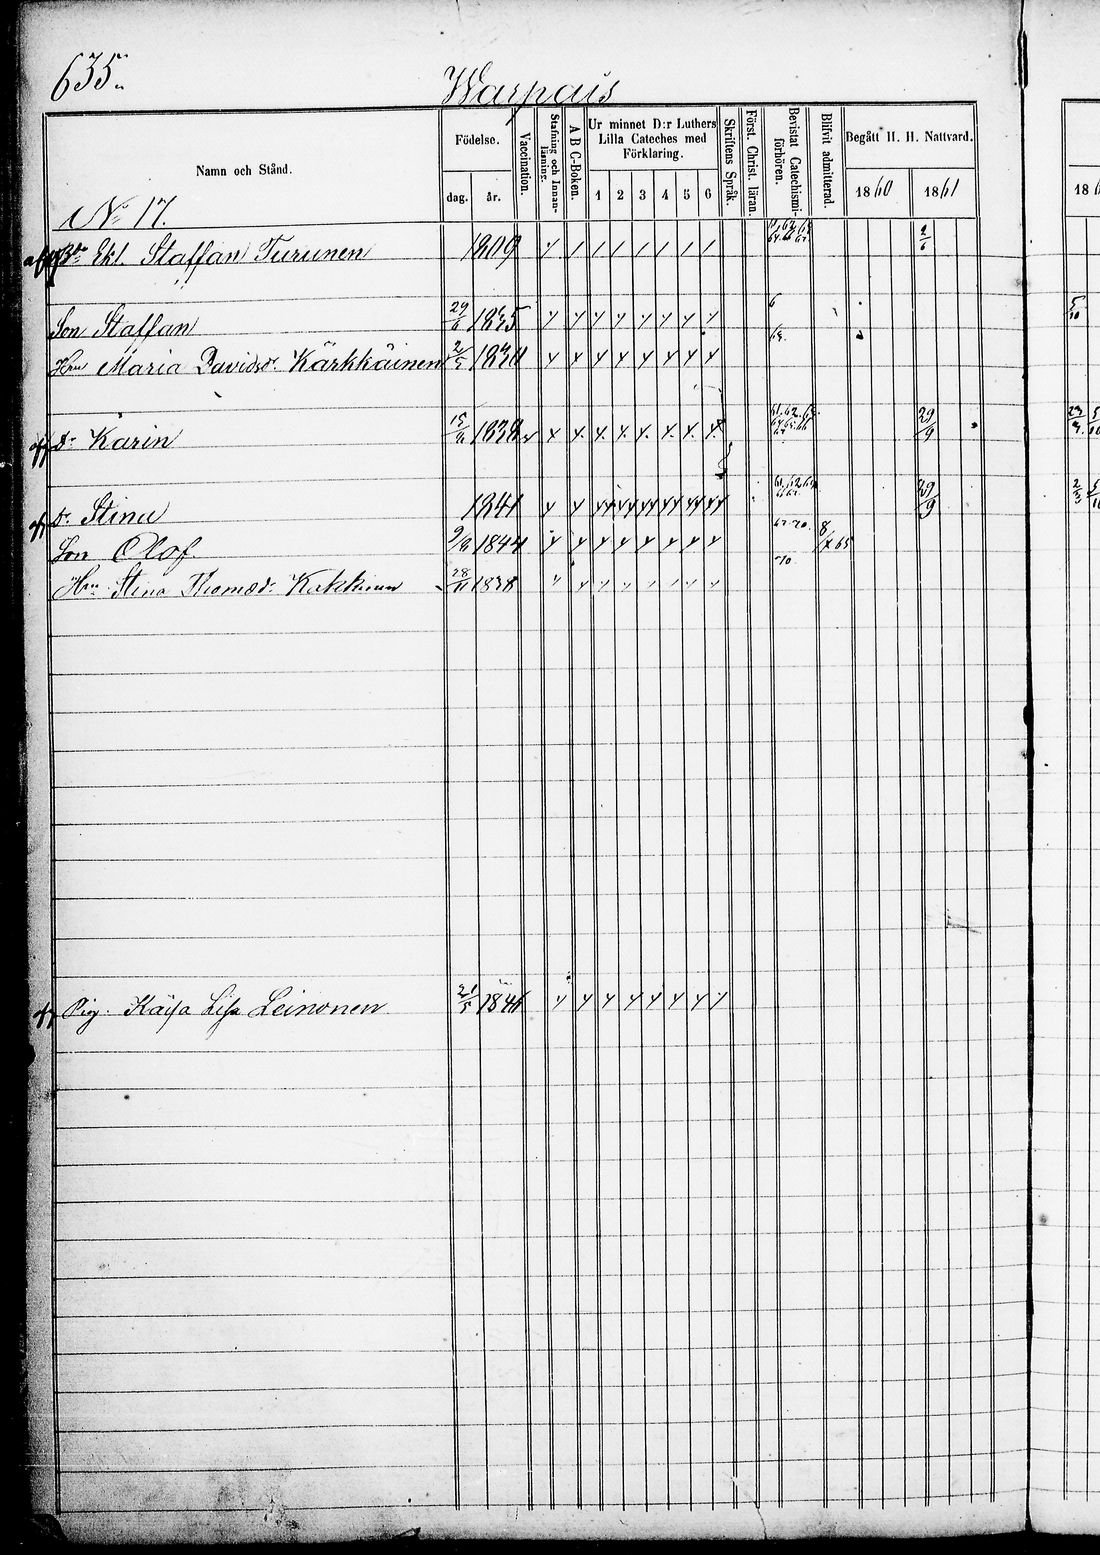 635.
Warpais
Namn och Stånd.
Födelse.
dag. år.
Vaccination.
Stafning och Innanläsning.
A B C-Boken.
Ur minnet D:r Luthers
Lilla Cateches med
Förklaring.
1 2 3 4 5 6
Skriftens Språk.
Först. Christ. läran.
Bevistat Catechismiförhören.
Blifvit admitterad.
Begått H. H. Nattvard.
1860 1861
No 17.
Staffan Turunen 1809 2/6
Son Staffan 29/6 1835
Hru Maria Davidsdr. Kärkkäinen
Dr Karin 1838 29/9
Dr Stina 1841 29/9
Son Olof 1844 67. 70.
Hru Stina Thomædr. 28/11 1838 70.
Pig. Kaisa Lisa Leinonen 184